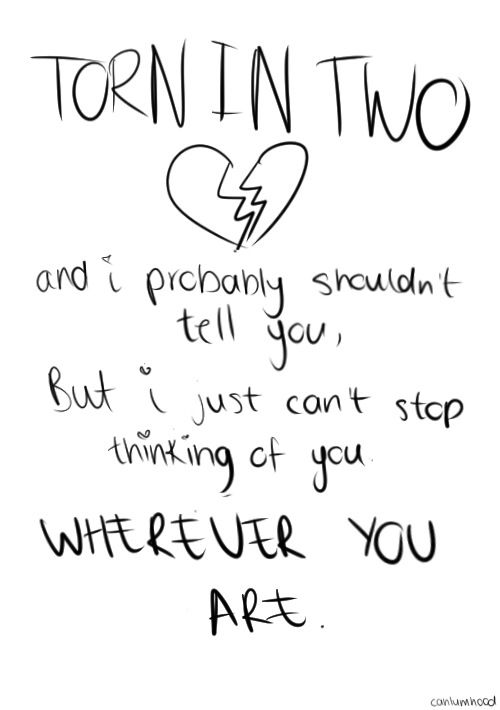 TORN IN TWO
and i probably shouldn't
tell you,
But i just can't stop
thinking of you.
WHEREVER YOU
ARE.
canlumhood